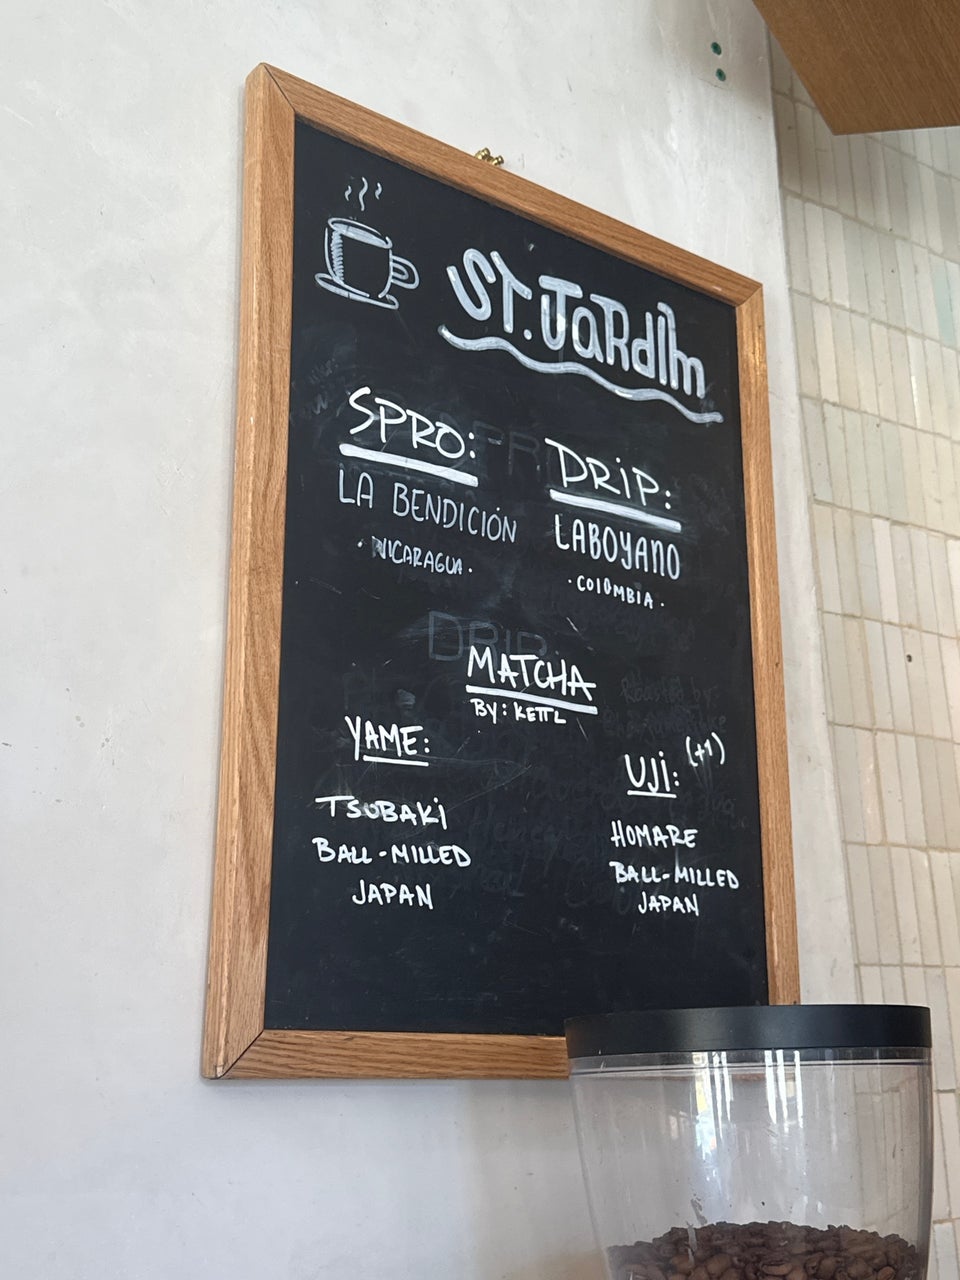 ST. JARDIM
SPRO:
LA BENDICIÓN
· NICARAGUA ·
DRIP:
LABOYANO
· COLOMBIA ·
DRIP
MATCHA
BY: KETTL
YAME:
TSUBAKI
BALL-MILLED
JAPAN
UJI: (+1)
HOMARE
BALL-MILLED
JAPAN